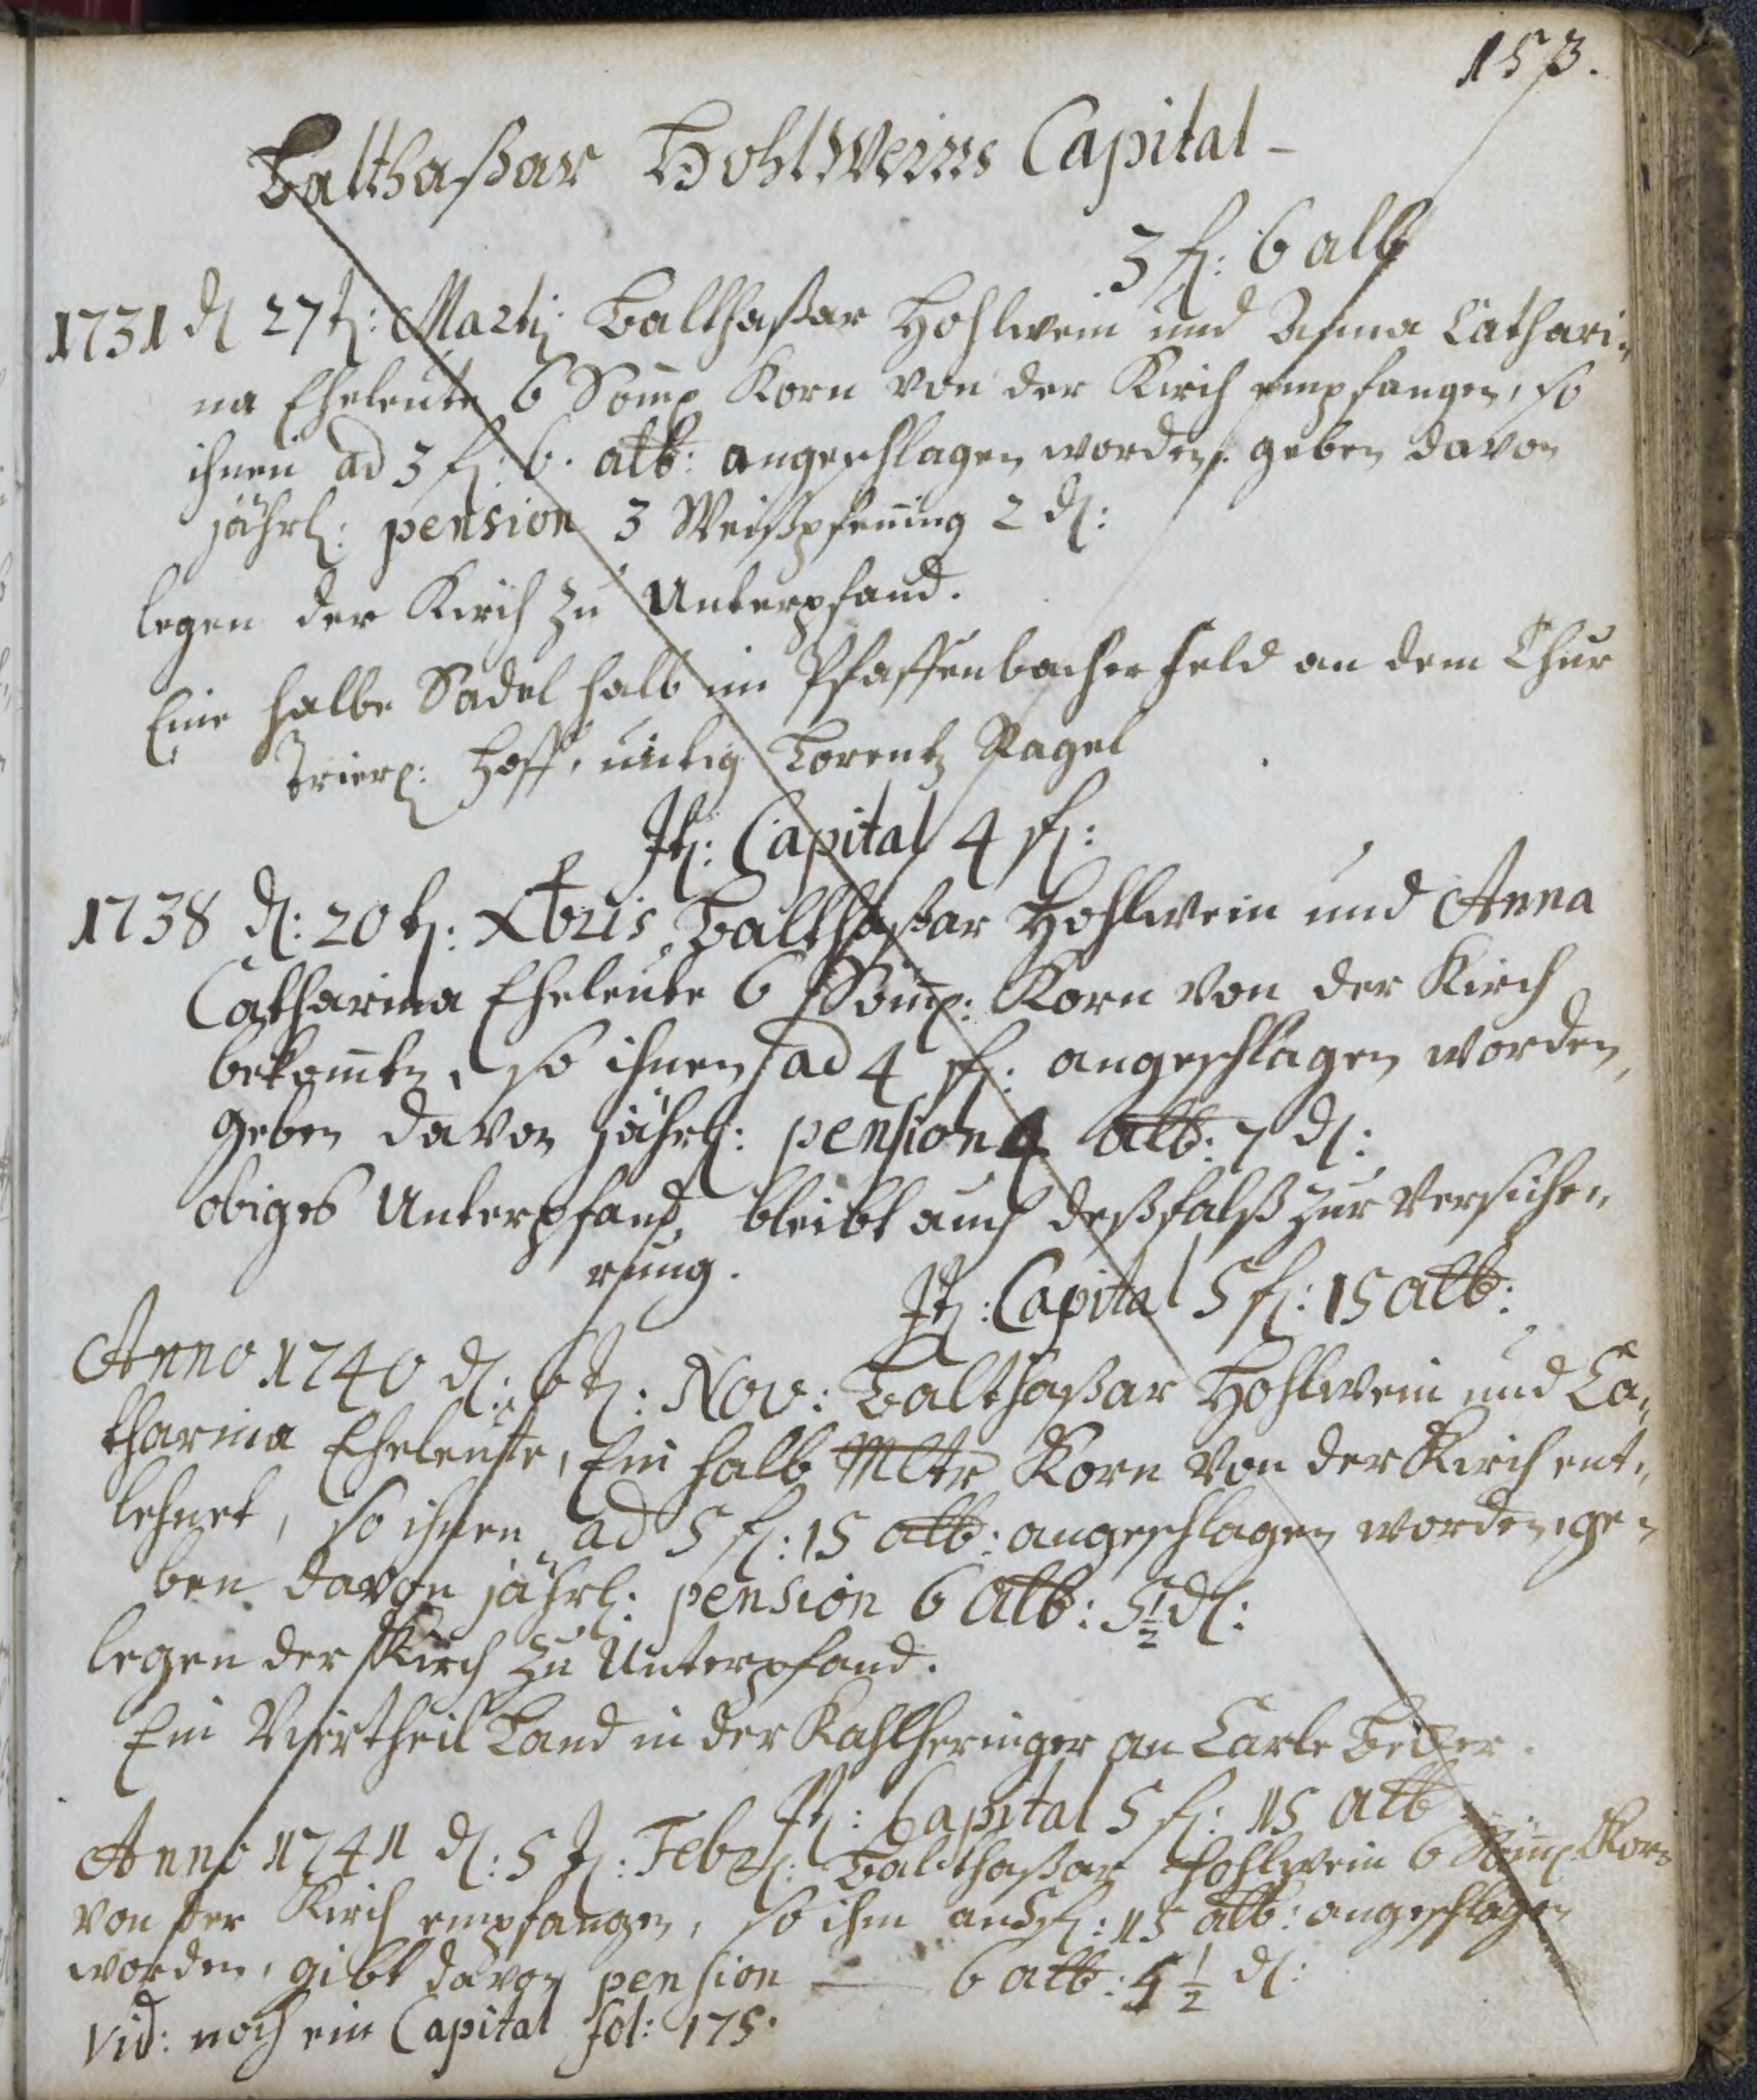 153.
Balthaßar Hohlweins Capital -
3 fl: 6 alb
1731 d 27t: Martij Balthaßar Hohlwein und Anna Cathari=
na Eheleute 6 Som̄e Korn von der Kirch empfangen, so
ihnen ad 3 fl: 6. alb: angeschlagen worden. geben davon
jährl: pension 3 Weißpfen̄ing 2 d:
legen der Kirch zu Unterpfand.
Eine halbe Sadel halb im Pfaffenbacher Feld an dem Chur
Trier: Hoff, Lorentz Nagel
It: Capital 4 fl:
1738 d: 20t: Xbris Balthaßar Hohlwein und Anna
Catharina Eheleute 6 Som̄: Korn von der Kirch
bekom̄en, so ihnen ad 4 fl: angeschlagen worden,
geben davon jährl: pension 4 alb: 7 d:
obiges Unterpfand bleibt auch deßfalß zur Versiche=
rung.
It: Capital 5 fl: 15 alb:
Anno 1740 d: 6t: Nov: Balthaßar Hohlwein und Ca=
tharina Eheleute, Ein halb Mltr Korn von der Kirch ent=
lehnet, so ihnen ad 5 fl: 15 alb: angeschlagen worden, ge=
ben davon jährl: pension 6 alb: 5½ d:
legen der Kirch zu Unterpfand.
Ein Viertheil Land in der Kahlheringer an Carle
It: Capital 5 fl: 15 alb
Anno 1741 d: 5t: Febr: Balthaßar Hohlwein 6 Som̄ Korn
von der Kirch empfangen, so ihm an 5 fl: 15 alb: angeschlagen
worden, gibt davon pension — 6 alb: 5 ½ d:
Vid: noch ein Capital fol: 175.